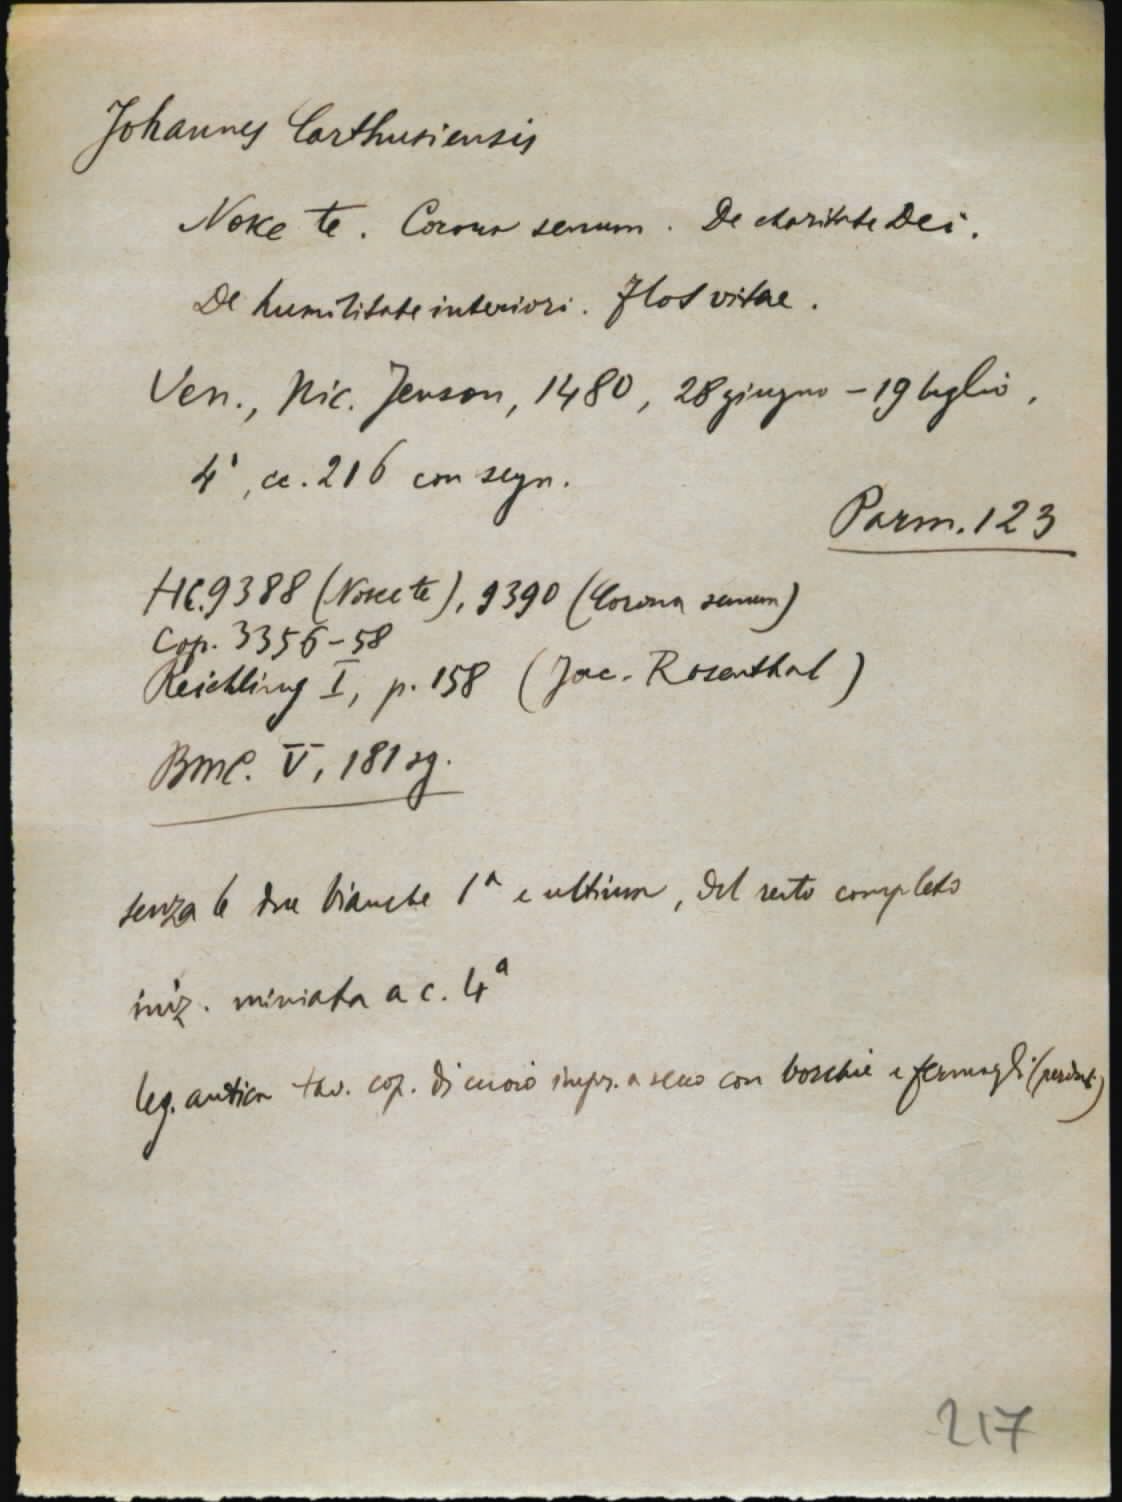 Johannes Carthusiensis
Nosce te. Corona senum. De charitate Dei.
De humilitate interiori. Flos vitae.
Ven., Nic. Jenson, 1480, 28 giugno – 19 luglio,
4°, cc. 216 con segn.
Parm. 123
HC. 9388 (Nosce te), 9390 (Corona senum)
Cop. 3356-58
Reichling I, p. 158 (Jac. Rosenthal)
BMC. V, 181 sg.
senza le due bianche 1ª e ultima, del resto completo
iniz. miniata a c. 4ª
leg. antica tav. cop. di cuoio impr. a secco con borchie e fermagli (perduti)
217